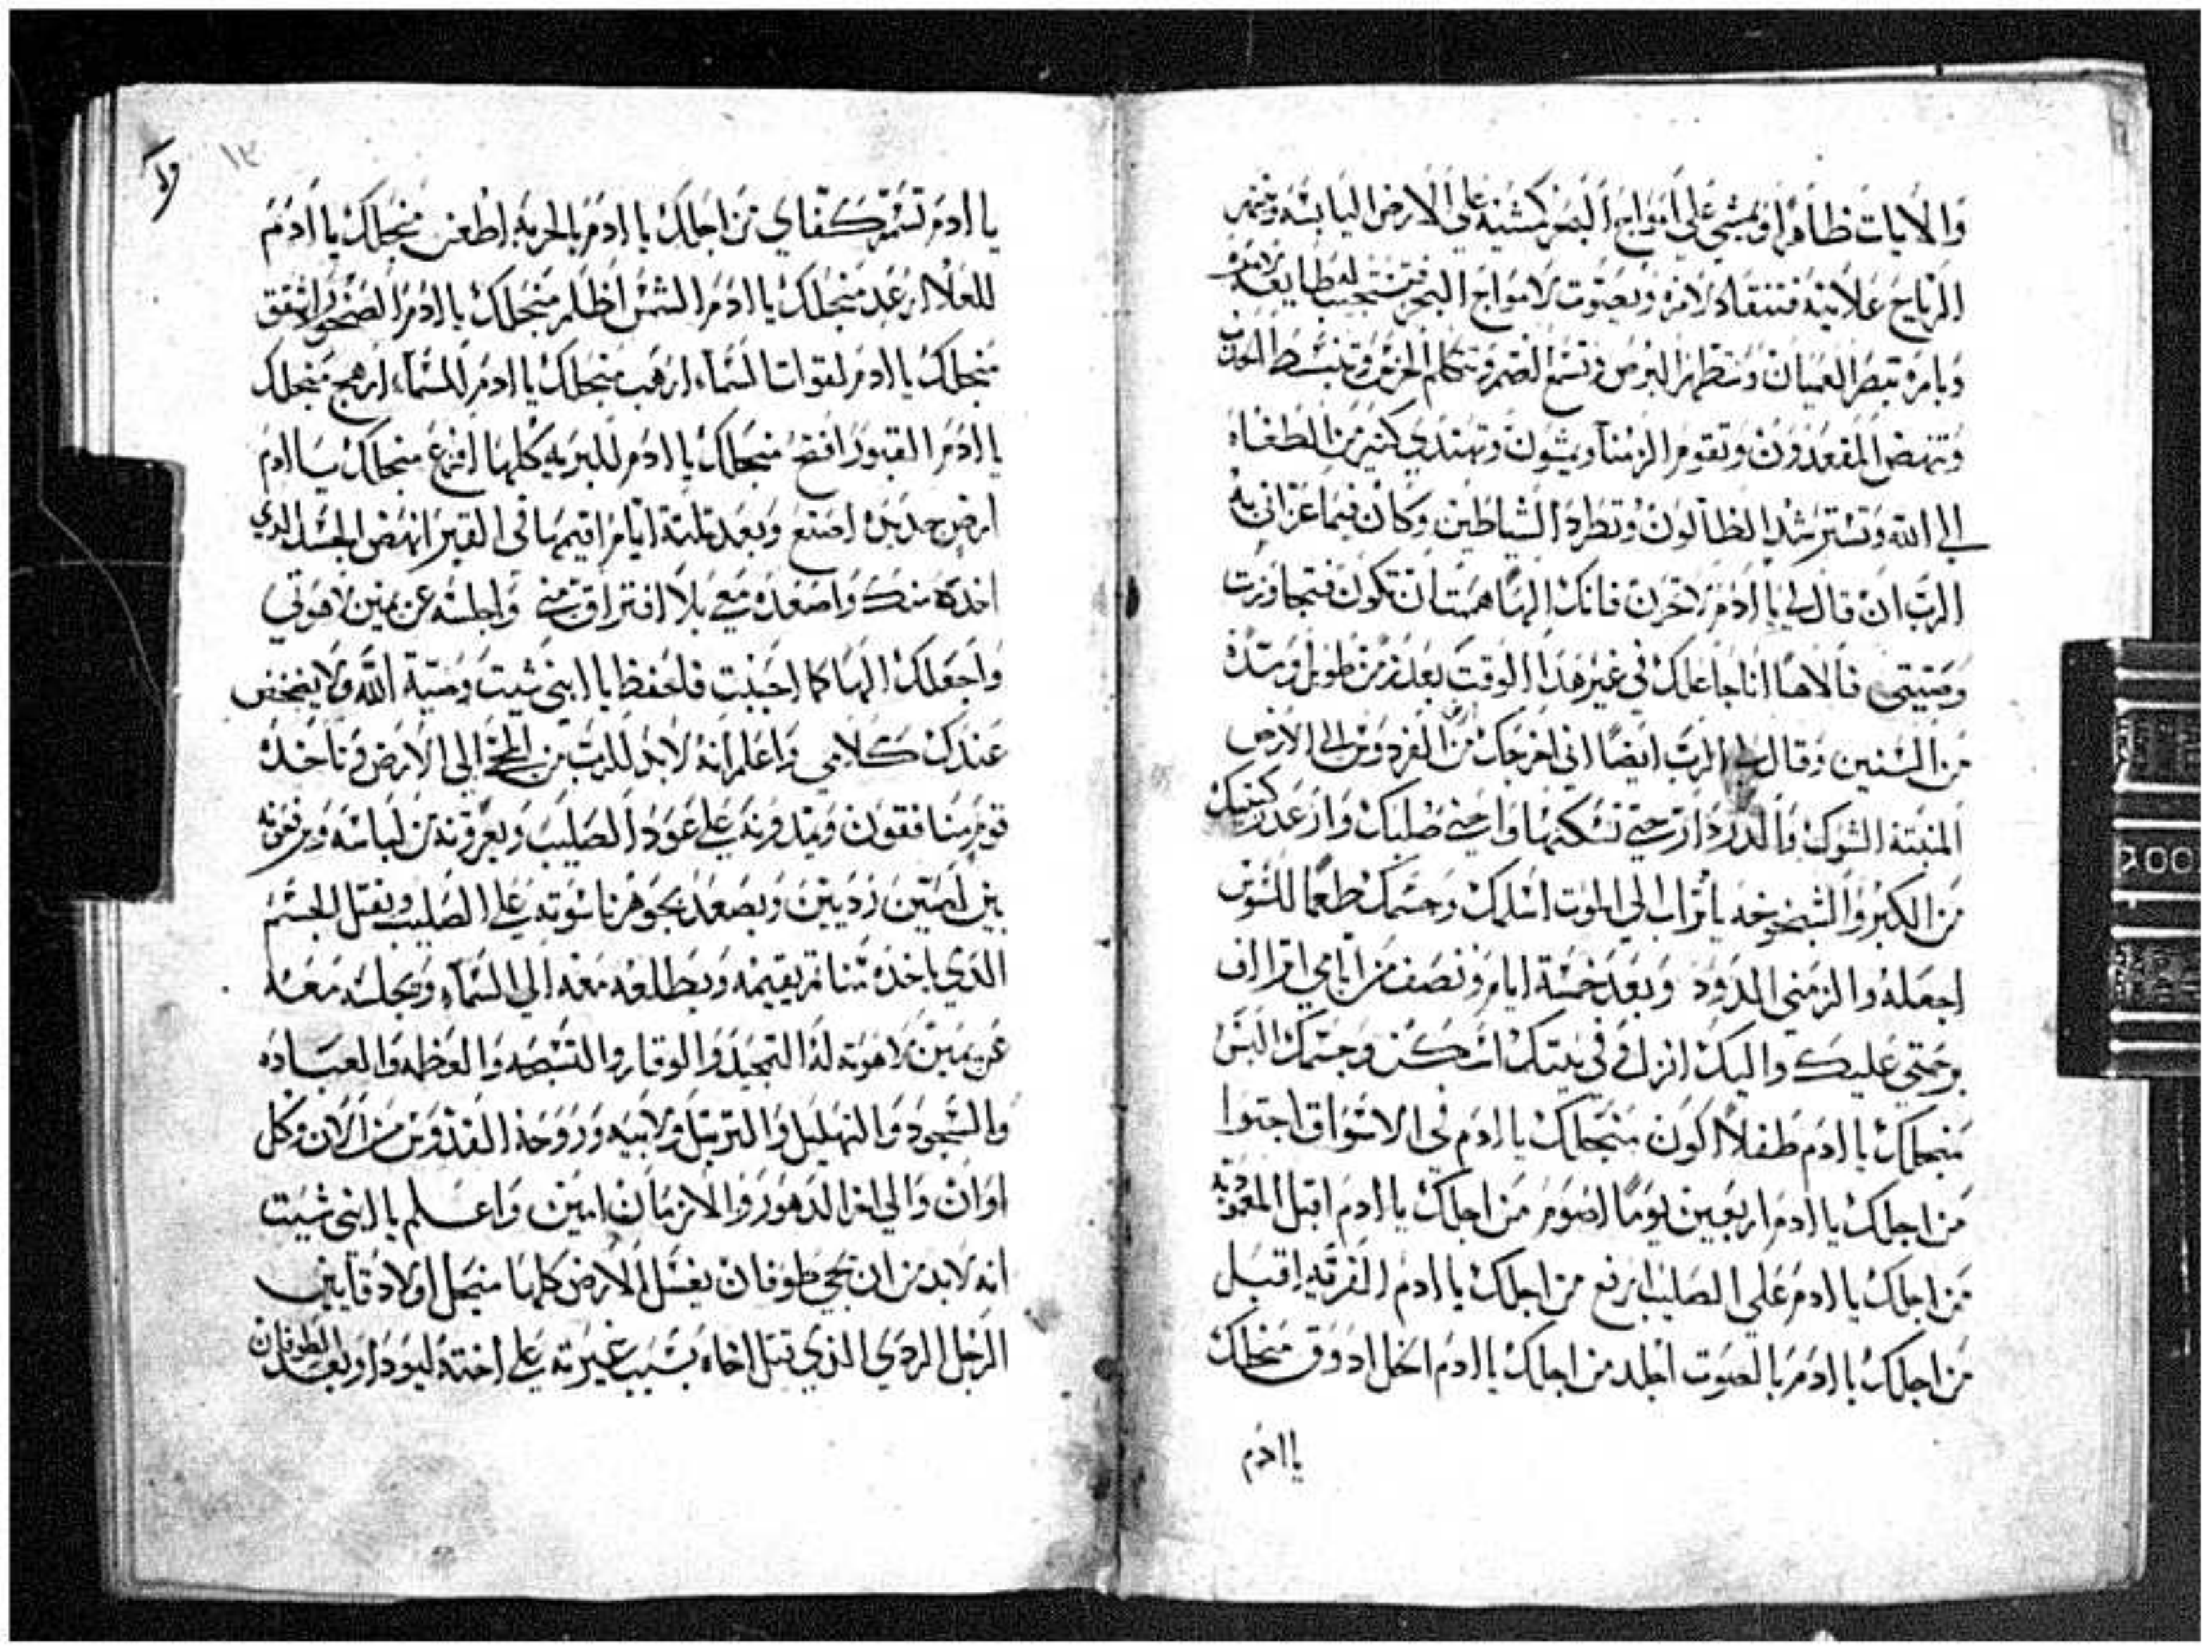 والايات ظاهرا ويمشي علي امواج البحر كمشيه علي الارض اليابسه وينتهر
الرياح علانيه فتنقاد لامره وبصوت لامواج البحر فتستجيب له طايعه لامره
وبامره تبصر العميان وتطهر البرص وتسمع الصم وتتكلم الخرس وتنبسط الحدب
وتنهض المقعدون وتقوم الزمنا ويمشون وتهتدي كثير من الطغاه
الي الله وتسترشد الظالون وتطرد الشياطين وكان فيما عزاني به
الرب ان قال لي يا ادم لاتحزن فانك الها هممت ان تكون فتجاوزت
وصيتي فالاها انا جاعلك في غير هدا الوقت بعد زمن طويل ومده
من السنين وقال لي الرب ايضا اني اخرجك من الفردوس الي الارض
المنبته الشوك والدردار حتي تسكنها واحني صلبك وارعد ركبتيك
من الكبر والشيخوخه يا تراب الي الموت اسلمك وجسمك طعما للسوس
اجعله والزمني الدود وبعد خمسة ايام ونصف من ايامي اتراف
برحمتي عليك واليك انزل وفي بيتك اسكن وجسمك البس
منجلك يا ادم طفلا اكون منجلك يا ادم في الاسواق اجتوا
من اجلك يا ادم اربعين يوما اصوم من اجلك يا ادم اقبل المعموديه
من اجلك يا ادم علي الصليب ارفع من اجلك يا ادم الفرقه اقبل
من اجلك يا ادم بالصوت اجلد من اجلك يا ادم الخل ادوق منجلك
يا ادم
١٣
يا ادم تسمر كفاي من اجلك يا ادم بالحربه اطعن منجلك يا ادم
للعلا ارعد منجلك يا ادم الشمس اظلم منجلك يا ادم الصخور اشقق
منجلك يا ادم لقوات السماء ارهب منجلك يا ادم للسماء ارهج منجلك
يا ادم القبور افتح منجلك يا ادم للبريه كلها افزع منجلك يا ادم
ارض جديده اصنع وبعد تلتة ايام اقيمها في القبر انهض الجسد الدي
اخده منك واصعده معي بلا افتراق مني واجلسه عن يمين لاهوتي
واجعلك الها كما احببت فاحفظ يا ابني شيت وصية الله ولا ينخفض
عندك كلامي واعلم انه لابد للرب من المجي الي الارض وتاخده
قوم منافقون ويمدونه علي عود الصليب ويعرونه من لباسه ويرفعونه
بين لصين رديين ويصعد بجوهر ناسوته علي الصليب ويقتل الجسم
الدي ياخده منا تم يقيمه ويطلعه معه الي السماء ويجلسه معه
عن يمين لاهوته له التمجيد والوقار والتسبحه والعظمه والعباده
والسجود والتهليل والترتيل ولابيه وروحه القدوس من الان وكل
اوان والي اخر الدهور والازمان امين واعلم يا ابني شيت
انه لابد من ان يجي طوفان يغسل الارض كلها منجل اولاد قايين
الرجل الردي الدي قتل اخاه بسبب غيرته علي اخته ليودا وبعد الطوفان